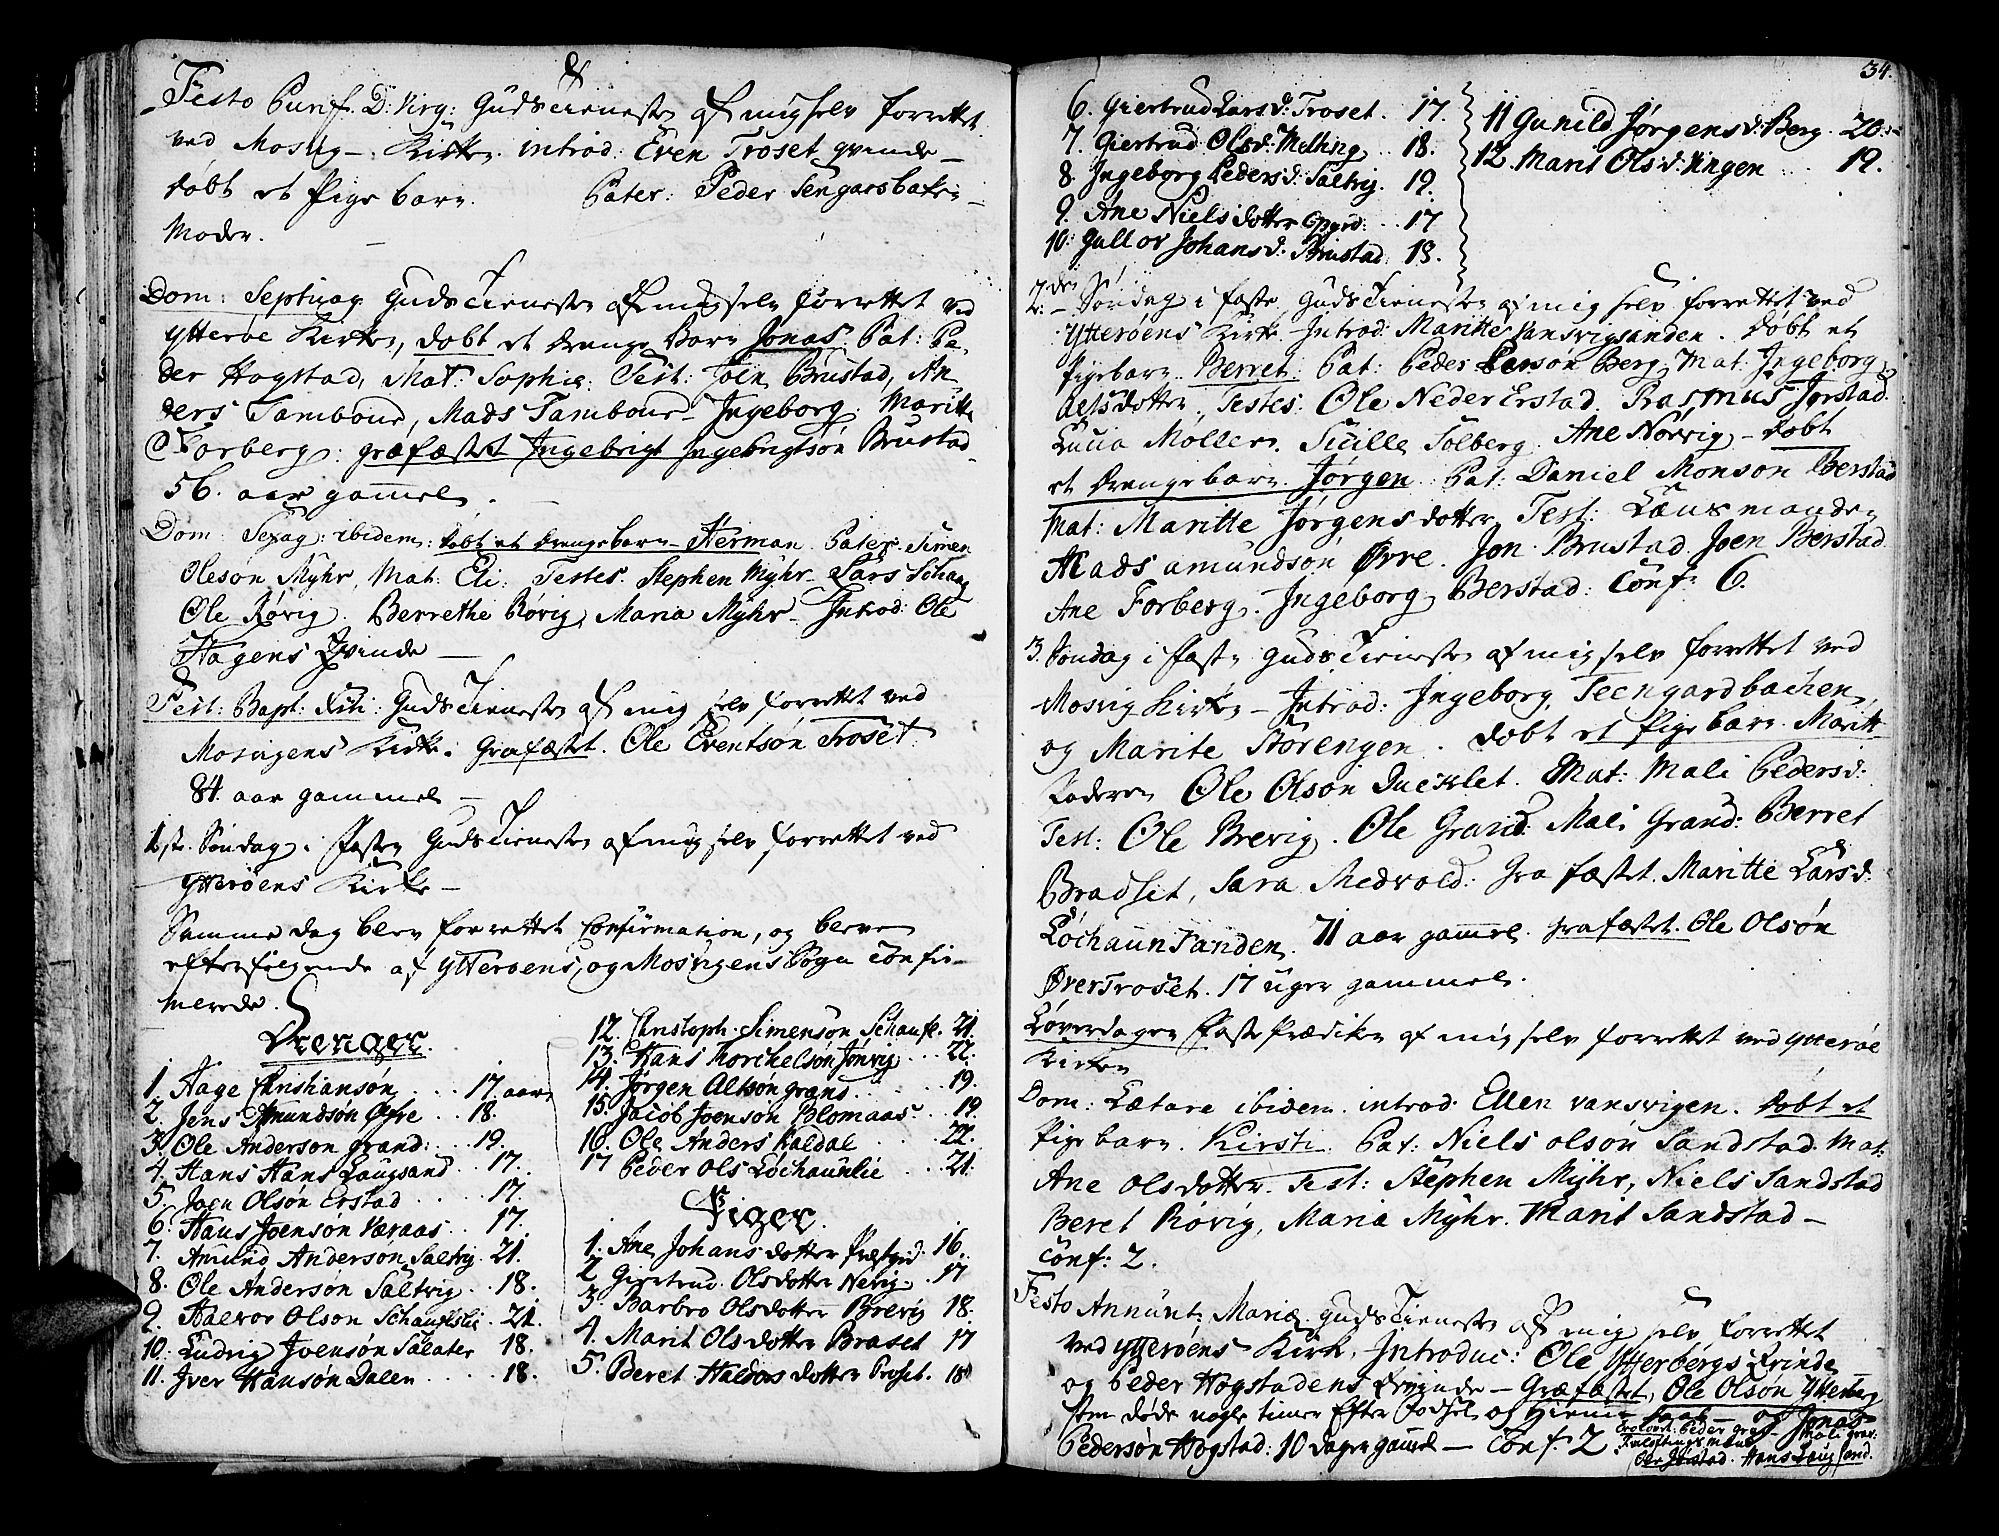 Festo Purif. D: Virg: Guds Tienesten af mig selv forrettet
ved Mosvig Kirke. introd: Even Troset qvinde
døbt et Pige barn. Pater: Peder
Moder.
Dom: Septuag Guds Tienesten af mig selv forrettet ved
Ytterøe Kirke, døbt et drenge Barn Jonas. Pat: Pe-
der Hogstad, Mat: Sophie: Test: Joen Brustad, An-
ders Tambour, Mads Tambour Ingeborg: Maritte
Forberg: græfæstet Ingebrigt Ingebrigtsøn Brustad
56. aar gammel.
Dom: Sexag: ibidem: døbt et drengebarn Herman Pater. Simen
Olesøn Myhr, Mat: Eli: Testes. Stephen Myhr Lars
Ole Røvig. Berrethe Røvig, Maria Myhr. Introd: Ole
Hagens Qvinde
Fest: Guds Tienesten af mig selv forrettet ved
Mosvigens Kirke. Grafæstet. Ole Eventsøn Troset
84. aar gammel
1ste Søndag i Fasten Guds Tienesten af mig selv forrettet ved
Ytterøens Kirke
Samme dag blev forrettet Confirmation, og bleve
efterfølgende af Ytterøens og Mosvigens Sogn Confir-
merede.
Drenger.
1. Aage Christiansøn 17 aar
2. Jens Amundsøn Øvre 18.
3. Ole Anderson grand: 19.
4. Hans Hans Laugsand 17.
5. Joen Olsøn Erstad 17.
6. Hans Joenson Væraas 17.
7. Amund Andersøn Saltvig 21.
8. Ole Andersøn Saltvig 18.
9. Halvor Olson 21.
10. Ludvig Joensøn Salater 18.
11. Iver Hansøn Dalen 18.
12. Christoph. Simensøn 21.
13. Hans Torchelsøn 22.
14. Jørgen grand 19.
15. Jacob Joensøn Blomaas 19.
16. Ole Anders Kaldal 22.
17 Peder Ols Løchaunlie 21.
Piger.
1. Ane Johans dotter Præstgrd: 16.
2. Giertrud Olsdotter 17
3. Barbro Olsdotter Brevig 18.
4. Marit Olsdotter Braset 17
5. Beret dotter 18
34.
6. Giertrud Larsd: Troset. 17.
7. Giertrud Olsd: 18.
8. Ingeborg Pedersd: Saltvig. 19.
9. Ane Nielsdotter 17
10: Gullov Johansd: Brustad: 18.
11 Gunild Jørgensd: Berg. 20.
12. Marit Olsd: Vingen 19.
2. den Søndag i faste Guds Tienesten af mig selv forrettet ved
Ytterøens Kirke Introd: Maritte Vansvigsanden. Døbt et
pigebarn. Berret: Pat: Peder Berg, Mat: Ingeborg
dotter, Testes: Ole Neder Erstad Rasmus Jørstad
Lucia Møllers. Sicille Solberg. Ane Norvig døbt
et drengebarn Jørgen. Pat: Daniel Monson Berstad
Mat: Maritte Jørgens dotter, Test: Lænsmanden
Mads Amundsøn Øvre. Jon Brustad. Joen Berstad
Ane Forberg. Ingeborg Berstad: Conf: 6.
3. Søndag i Faste Guds Tienesten af mig selv forrettet ved
Mosvig Kirke Introd: Ingeborg
og Marite Storengen. Døbt et Pige barn. Marit
Faderen Ole Olsøn Mat: Mali Pedersd:
Test: Ole Brevig. Ole Grand Mali Grand: Berret
Bradset, Sara Medvold: Grafæstet. Maritte Larsd:
Løchaunsanden. 71 aar gammel. grafæstet. Ole Olsøn
Øver Troset. 17 uger gammel.
Løverdagen Faste Prædiken af mig selv forrettet ved Ytterøe
Kirke
Dom: Lætare ibidem. introd. Ellen vansvigen. Døbt et
Pige barn. Kirsti Pat: Niels olsøn Sandstad. Mat:
Ane olsdotter. Test: Stephen Myhr, Niels Sandstad
Beret Røvig, Maria Myhr. Marit Sandstad
Conf: 2.
Festo Annunt: Mariæ. Guds Tienesten af mig selv forrettet
ved Ytterøens Kirke, Introduc: Ole Ytterbergs Qvinde
og Peder Hogstadens Qvinde Græfæstet, Ole Olsøn Ytterberg
som døde nogle timer Efter fødsel og Hieme daab og Jonas
Pedersøn Hogstad: 10 Dager gammel Conf. 2
Trolovet: Peder
Forlovings mænd
Ole Hans Laugsand.